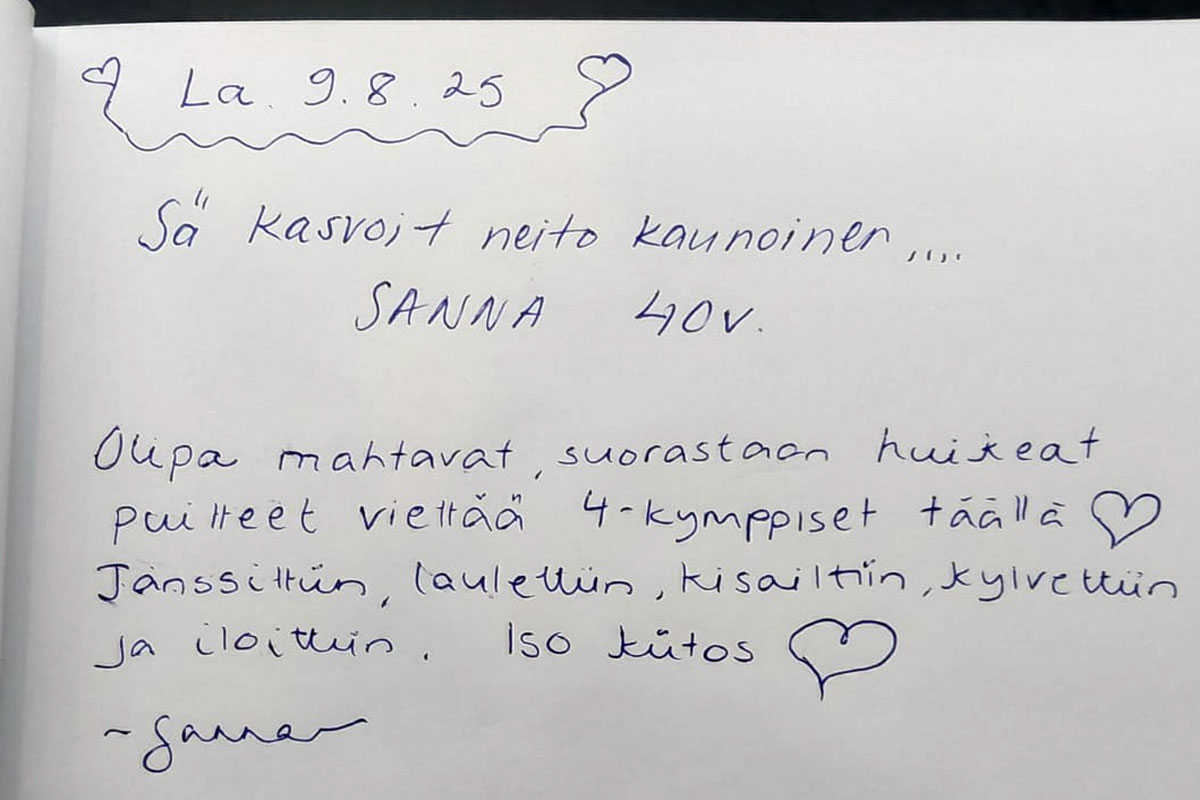 La. 9.8.25
Sä kasvoit neito kaunoinen,...
SANNA 40v.
Olipa mahtavat, suorastaan huikeat
puitteet viettää 4-kymppiset täällä ♡
Tanssittiin, laulettiin, kisailtiin, kylvettiin
ja iloittiin. Iso kiitos ♡
~Sanna